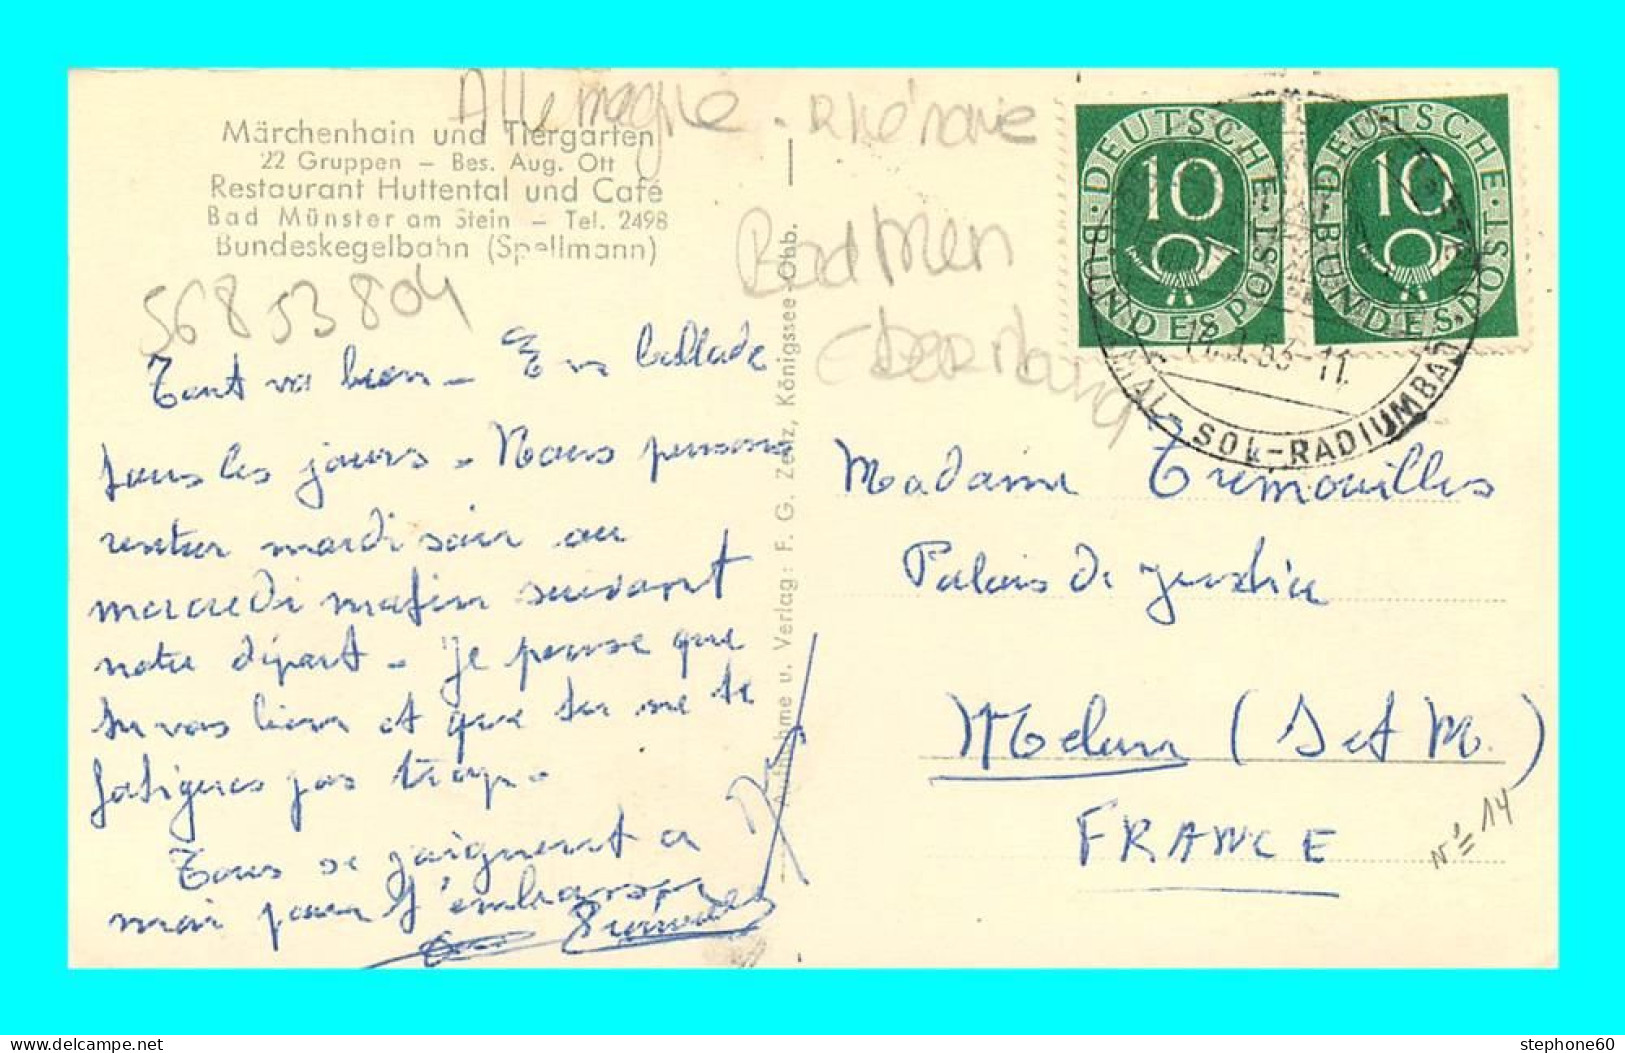 Allemagne - Rhénanie
Märchenhain und Tiergarten
22 Gruppen – Bes. Aug. Ott
Restaurant Huttental und Café
Bad Münster am Stein – Tel. 2498
Bundeskegelbahn (Spellmann)
56853804
Tout va bien - En ballade
tous les jours - Nous pensons
rentrer mardi soir ou
mercredi matin suivant
notre départ - Je pense que
tu vas bien et que tu ne te
fatigues pas trop -
Tous se joignent a
moi pour t'embrasser
Aufnahme u. Verlag: F. G. Zeitz, Königssee-Obb.
Bad Mün
Ebernburg
DEUTSCHE BUNDESPOST 10
DEUTSCHE BUNDESPOST 10
53-11
THERMAL-SOL-RADIUMBAD
Madame Tremouilles
Palais de Justice
Melun (S et M.)
FRANCE
N°= 14
stephone60